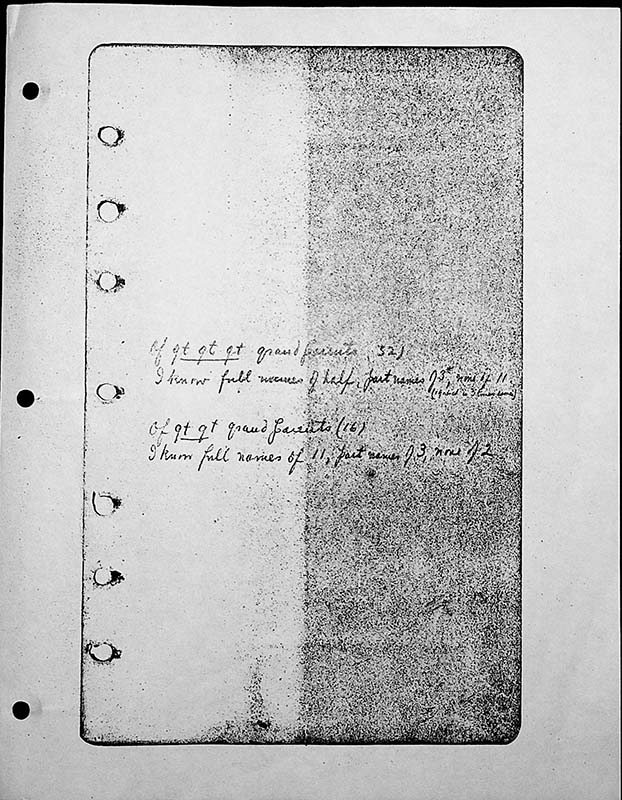 Of gt gt gt grandparents (32)
I know full names of half, part names of 3, none of 11
Of gt gt grandparents (16)
I know full names of 11, part names of 3, none of 2